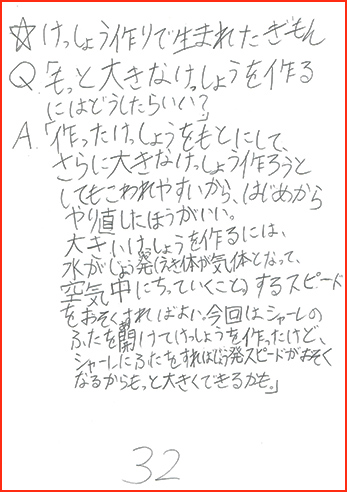 ☆けっしょう作りで生まれたぎもん
Q.「もっと大きなけっしょうを作る
にはどうしたらいい?」
A.「作ったけっしょうをもとにして、
さらに大きなけっしょう作ろうと
してもこわれやすいから、はじめから
やり直したほうがいい。
大きいけっしょうを作るには、
水がじょう発(えき体が気体となって、
空気中にちっていくこと)するスピード
をおそくすればよい。今回はシャーレの
ふたを開けてけっしょうを作ったけど、
シャーレにふたをすればじょう発スピードがおそく
なるからもっと大きくできるかも。」
32